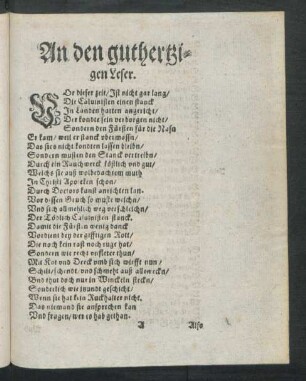 An den guthertzi-
gen Leser.
VOr dieser zeit/ Ist nicht gar lang/
Die Caluinisten einen stanck
In Landen hatten angericht/
Der kondte sein verborgen nicht/
Sondern den Fürsten für die Nasn
Er kam/ weil er stanck vbermassn/
Das sies nicht kondten lassen bleibn/
Sondern musten den Stanck vertreibn/
Durch ein Rauchwerck köstlich vnd gut/
Welchs sie auß wolbedachtem muth
In Apotecken schon/
Durch Doctors kunst anrichten lan.
Vor dissen Geuch so muste weichn/
Vnd sich allmehlich weg verschleichn/
Der Tödtlich Caluinisten stanck.
Damit die Fürsten wenig danck
Verdient bey der gifftigen Rott/
Die noch kein raß noch ruge hat/
Sondern wie recht vnfletet thun/
Mit Kot vnd Dreck vmb sich wirfft nun/
Schilt/schendt/ vnd schmeht auß allweckn/
Vnd thut doch nur in Winckeln steckn/
Sonderlich wie jtzundt geschicht/
Wenn sie hat kein Ruckhalter nicht.
Das niemand sie ansprechen kan
Vnd fragen/ wer es hab gethan.
A Also